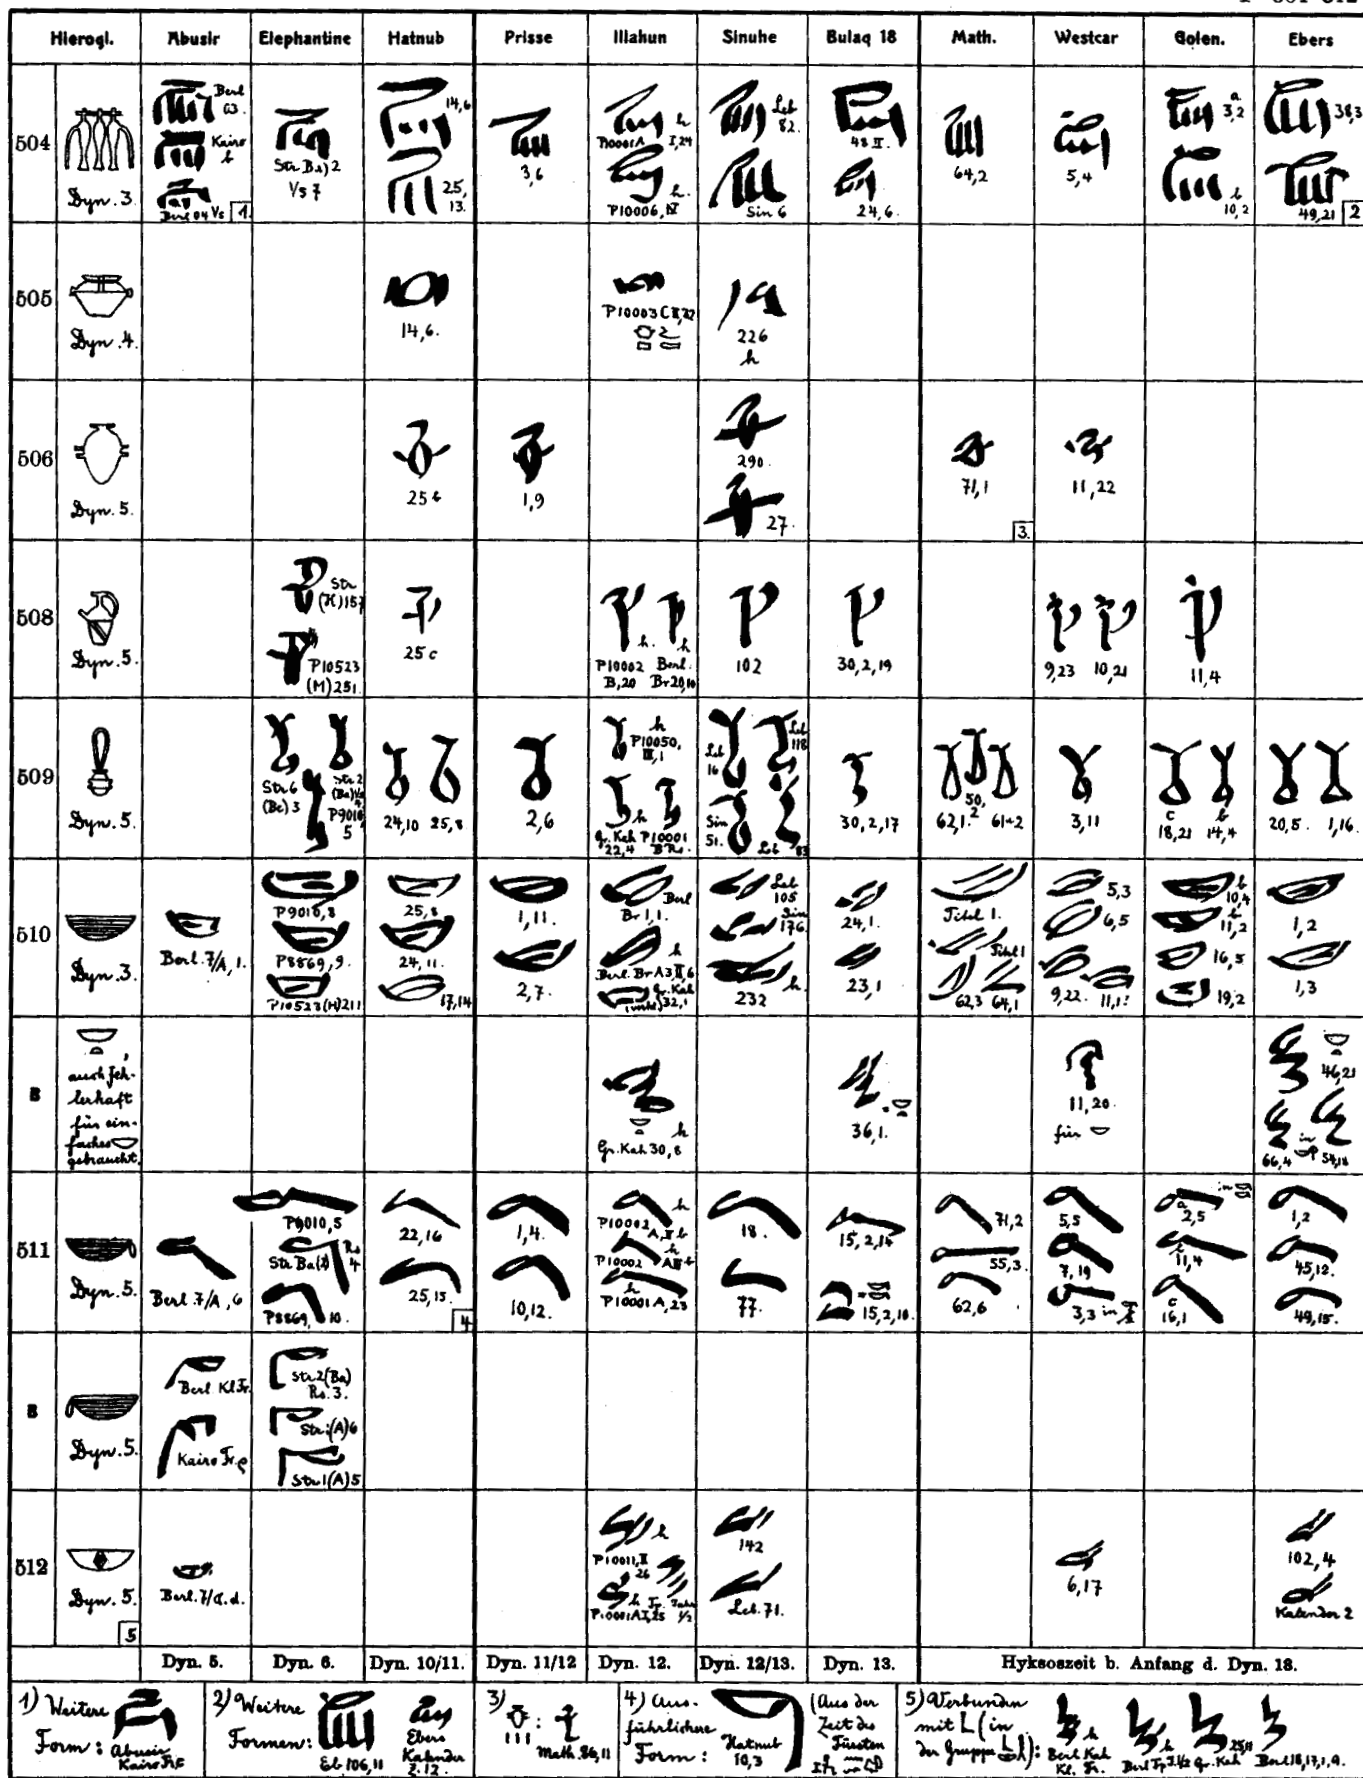 Hierogl. Abusir Elephantine Hatnub Prisse Illahun Sinuhe Bulaq 18 Math. Westcar Golen. Ebers
504
Dyn. 3.
Berl 63.
Kairo b
1
Str Ba) 2
Vs 7
14,6
25,
13.
3,6
h
I,24
h.
P10006, IV
Leb 82.
Sin 6
48 II.
24,6.
64,2
5,4
a
3,2
b
10,2
38,3
49,21 2
505
Dyn. 4.
14,6.
P10003 C II,22
226
h
506
Dyn. 5.
25 6
1,9
290.
27.
71,1
3.
11,22
508
Dyn. 5.
Str
(K)157
P10523
(M)251.
25 c
h. h
P10002 Berl.
B,20 Br 20,10
102
30,2,19
9,23 10,21
11,4
509
Dyn. 5.
Str 6
(Bc) 3
Str 2
P9010
5
24,10 25,8
2,6
h
P10050,
III,1
h
Gr. Kah P10001
22,4 B Rs.
Leb 16
Leb 118
Sin 51.
Leb 83
30,2,17
62,1. 50,2 61,2
3,11
c b
18,21 14,4
20,5. 1,16.
510
Dyn. 3.
Berl. 7/A, 1.
P9010,8
P8869, 9.
P10523(M)211
25,8
24,11.
17,14
1,11.
2,7.
Berl
Br 1,1.
h
Berl. Br A3 II 6
Gr. Kah
32,1
Leb
105
Sin
176.
232 h.
24,1.
23,1
Titel 1.
Titel 1
62,3 64,1
5,3
6,5
9,22. 11,1.
b
10,4
b
11,2
16,5
19,2
1,2
1,3
B
,
auch feh-
lerhaft
für ein-
faches
gebraucht.
h
Gr. Kah 30,8
36,1.
11,20.
für
46,21
66,4 in 54,18
511
Dyn. 5.
Berl. 7/A, 6
P9010,5
Str Ba(2) Rs 4
P8869, 10.
22,16
25,15.
4
1,4.
10,12.
h
P10002
A, II b
h
P10002
h
P10001 A,23
18.
77.
15,2,14
15,2,10.
71,2
55,3.
62,6
5,5
7,19
3,3 in
in
a
2,5
b
11,4
c
16,1
1,2
45,12.
49,15.
B
Dyn. 5.
Berl Kl. Fr.
Kairo Fr. e
Str 2(Ba)
Rs. 3.
Str. (A) 6
Str 1(A) 5
512
Dyn. 5.
5
Berl. 7/a. d.
h
P10011, II
26
h
P10001 A I,25
142
Leb. 71.
6,17
102, 4
Kalender 2
Dyn. 5. Dyn. 6. Dyn. 10/11. Dyn. 11/12 Dyn. 12. Dyn. 12/13. Dyn. 13. Hyksoszeit b. Anfang d. Dyn. 18.
1) Weitere
Form: Abusir
Kairo Fr. F
2) Weitere
Formen:
Eb 106,11
Ebers
Kalender
2.12.
3) :
Math. 86,11
4) Aus-
führlichere
Form:
Hatnub
10,3
(Aus der
Zeit des
Fürsten
5) Verbunden
mit (in
der Gruppe ):
h
Berl Kah
Kl. Fr.
h
Gr. Kah
25,11
Berl 18,17,1,9.